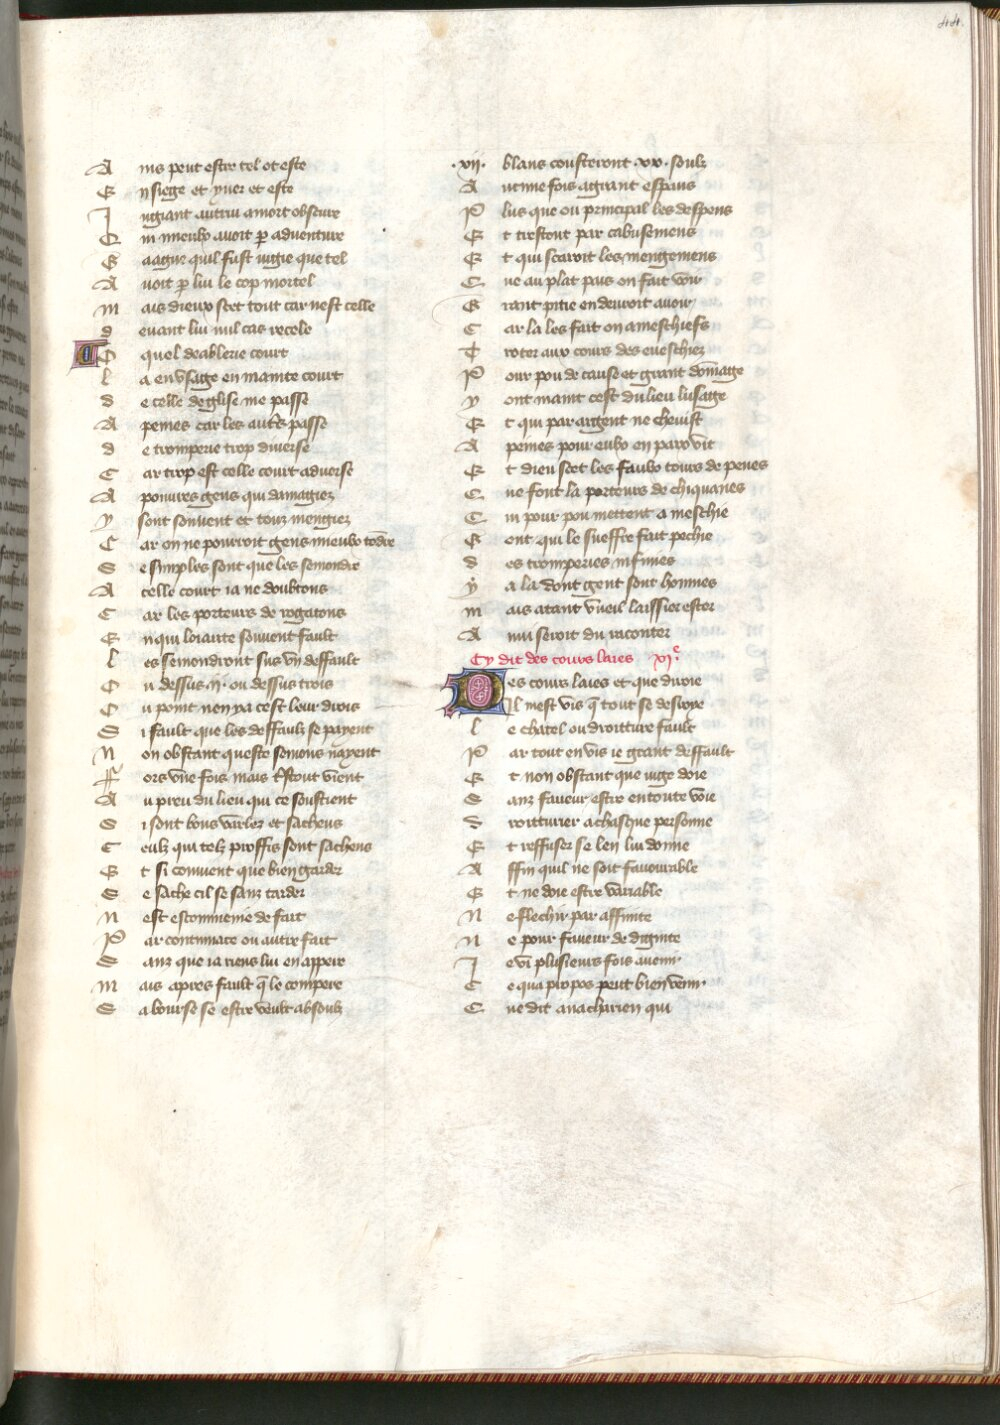 44
Ains peut estre tel ot este
En siege et yver et este
Jugiant autrui a mort obscure
Qui mieulx avoit p adventure
Gaagne quil fust iugie que tel
Avoit p lui le cop mortel
Mais dieux scet tout car nest celle
Devant lui nul cas recele
O quel deablerie court
La en usage en mainte court
De celle deglise me passe
A peines car les autres passe
De tromperie trop diverse
Car trop est celle court adverse
A pouvres gens qui damagiez
Y sont souvent et touz mengiez
Car on ne pourroit gens mieulx todre
Se simples sont que les semondre
A celle court ia ne doubtons
Car les porteurs de rogatons
En qui loiaute souvent fault
Les semondront sus un deffault
Ou dessus ii. ou dessus trois
Ou point nen ya cest leur drois
Si fault que les deffaulz se payent
Non obstant queste semons nayent
Fors une fois mais tstout vient
Au preu du lieu qui ce soustient
Si sont bons varlez et sachens
Ceulz qui telz proffis sont sachens
Et si convient que bien garder
Se sache cil se sanz tarder
Nest escommenie de fait
Par contumace ou autre fait
Sanz que ia riens lui en appeir
Mais apres fault q le compere
Sa bourse se estre veult absoulz
.xii. blans cousteront .xx. soulz
Aucune fois a grant espaus
Plus que ou principal les despens
Et trestout par cabusemens
Et qui scaroit les mengemens
Que au plat pais on fait voir
Grant pitie en devroit avoir
Car la les fait on a meschiefs
Troter aux cours des eveschiez
Pour pou de cause et grant domage
Y ont maint cest du lieu lusage
Et qui par argent ne chevist
A peines pour eulx en paix vit
Et dieu scet les faulx tours de penes
Que font la porteurs de chiquanes
Qui pour pou mettent a meschie
Gent qui le sueffre fait pechie
Des tromperies infinies
Y a la dont gent sont honnies
Mais atant vueil laissier ester
Annui seroit du raconter
Cy dit des cours laies xi.e
Des cours laies et que diroie
Il mest vis q tout se desroye
Le chatel ou droitture fault
Par tout en vis ie grant deffault
Et non obstant que iuge doie
Sanz faveur estre en toute voie
Droitturier a chasque personne
Et reffuser se len lui donne
Affin quil ne soit favourable
Et ne doie estre variable
Ne flechir par affinite
Ne pour faveur de dignite
Je vi plusieurs fois avenir
Ce qua propos peut bien venir
Que dit anacharien qui